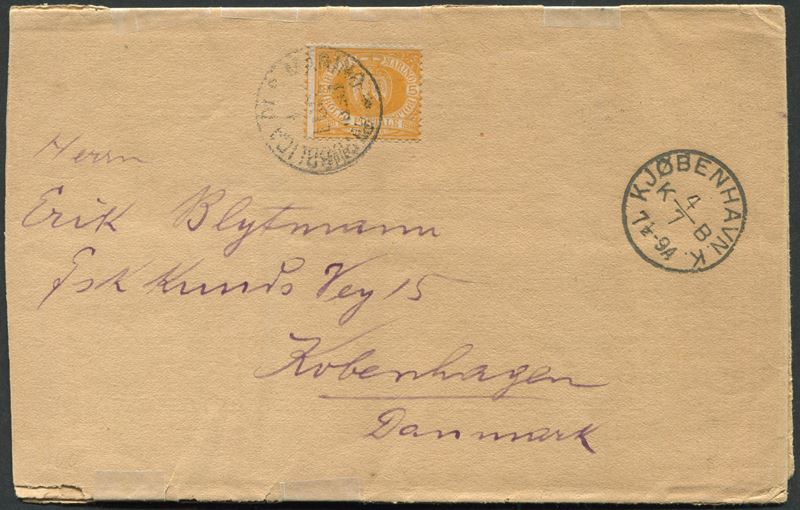 MARINO
5
REPUBBLICA DI S. MARINO
Herrn
Erik Blytmann
Kunds Vey 15
Kobenhagen
Danmark
KJØBENHAVN.K.
4
K B
7
7½-9A